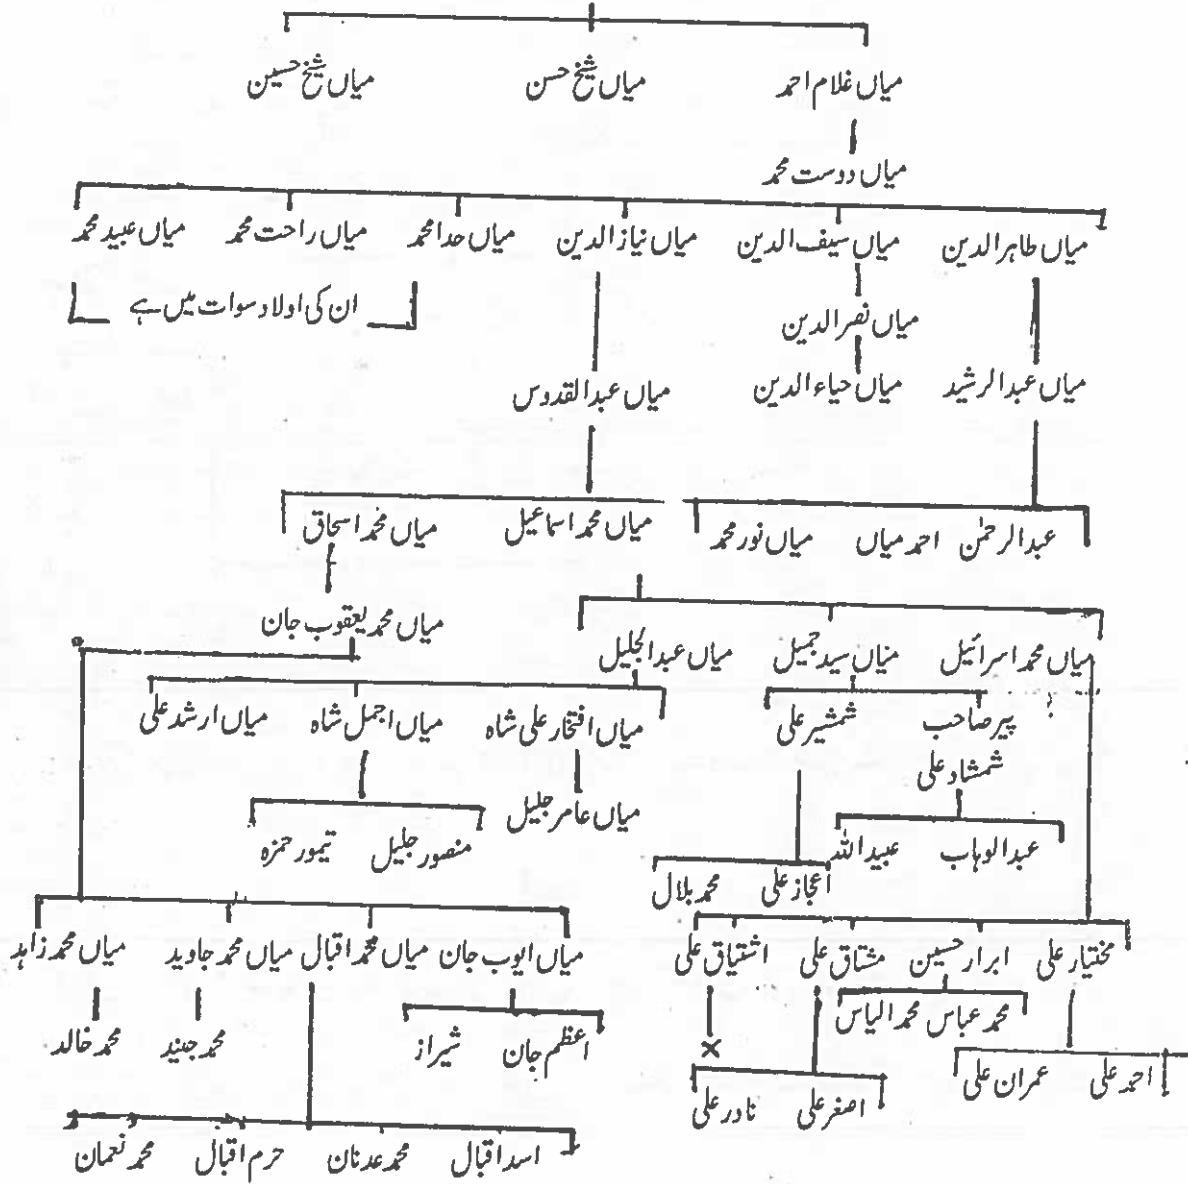 میاں غلام احمد میاں شیخ حسن میاں شیخ حسین
میاں دوست محمد
میاں طاہر الدین میاں سیف الدین میاں نیاز الدین میاں حدا محمد میاں راحت محمد میاں عبید محمد
ان کی اولاد سوات میں ہے
میاں نصر الدین
میاں عبدالرشید میاں حیاء الدین میاں عبدالقدوس
عبدالرحمٰن احمد میاں میاں نور محمد میاں محمد اسماعیل میاں محمد اسحاق
میاں محمد یعقوب جان
میاں محمد اسرائیل میاں سید جمیل میاں عبدالجلیل
پیر صاحب شمشیر علی میاں افتخار علی شاہ میاں اجمل شاہ میاں ارشد علی
شمشاد علی
میاں عامر جلیل
عبدالوہاب عبید اللہ منصور جلیل تیمور حمزہ
اعجاز علی محمد بلال
مختیار علی ابرار حسین مشتاق علی اشتیاق علی میاں ایوب جان میاں محمد اقبال میاں محمد جاوید میاں محمد زاہد
محمد عباس محمد الیاس
اعظم جان شیراز محمد جنید محمد خالد
احمد علی عمران علی
اصغر علی نادر علی
اسد اقبال محمد عدنان حرم اقبال محمد نعمان